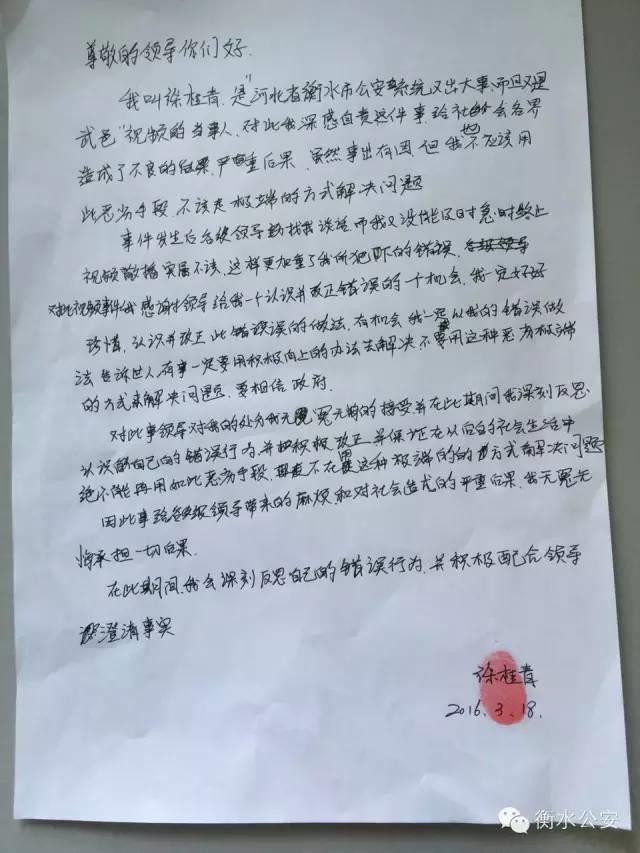 尊敬的领导你们好.
我叫徐桂青.是"河北省衡水市公安系统又出大事,而且又是
武邑"视频的当事人.对此我深感自责这件事给社会各界
造成了不良的后果.严重后果.虽然事出有因但我也不应该用
此恶劣手段.不该走极端的方式解决问题
事件发生后各级领导都找我谈话.而我又没能及时急时终止
视频散播实属不该.这样更加重了我所犯下的错误.
对此视频事件我感谢领导给我一个认识并改正错误的一个机会.我一定好好
珍惜.认识并改正此错误的做法.有机会我一定以我的错误做
法告诉世人有事一定要用积极向上的办法去解决不要用这种恶劣极端
的方式来解决问题.要相信政府.
对此事领导对我的处分我无冤无悔的接受并在此期间我深刻反思.
认识解自己的错误行为.并积极改正.并保证在以后的社会生活中
绝不能再用如此恶劣手段.不在用这种极端的的方式解决问题
因此事给各级领导带来的麻烦和对社会造成的严重后果.我无冤无
悔承担一切后果.
在此期间.我会深刻反思自己的错误行为.并积极配合领导
澄清事实
徐桂青
2016.3.18.
衡水公安